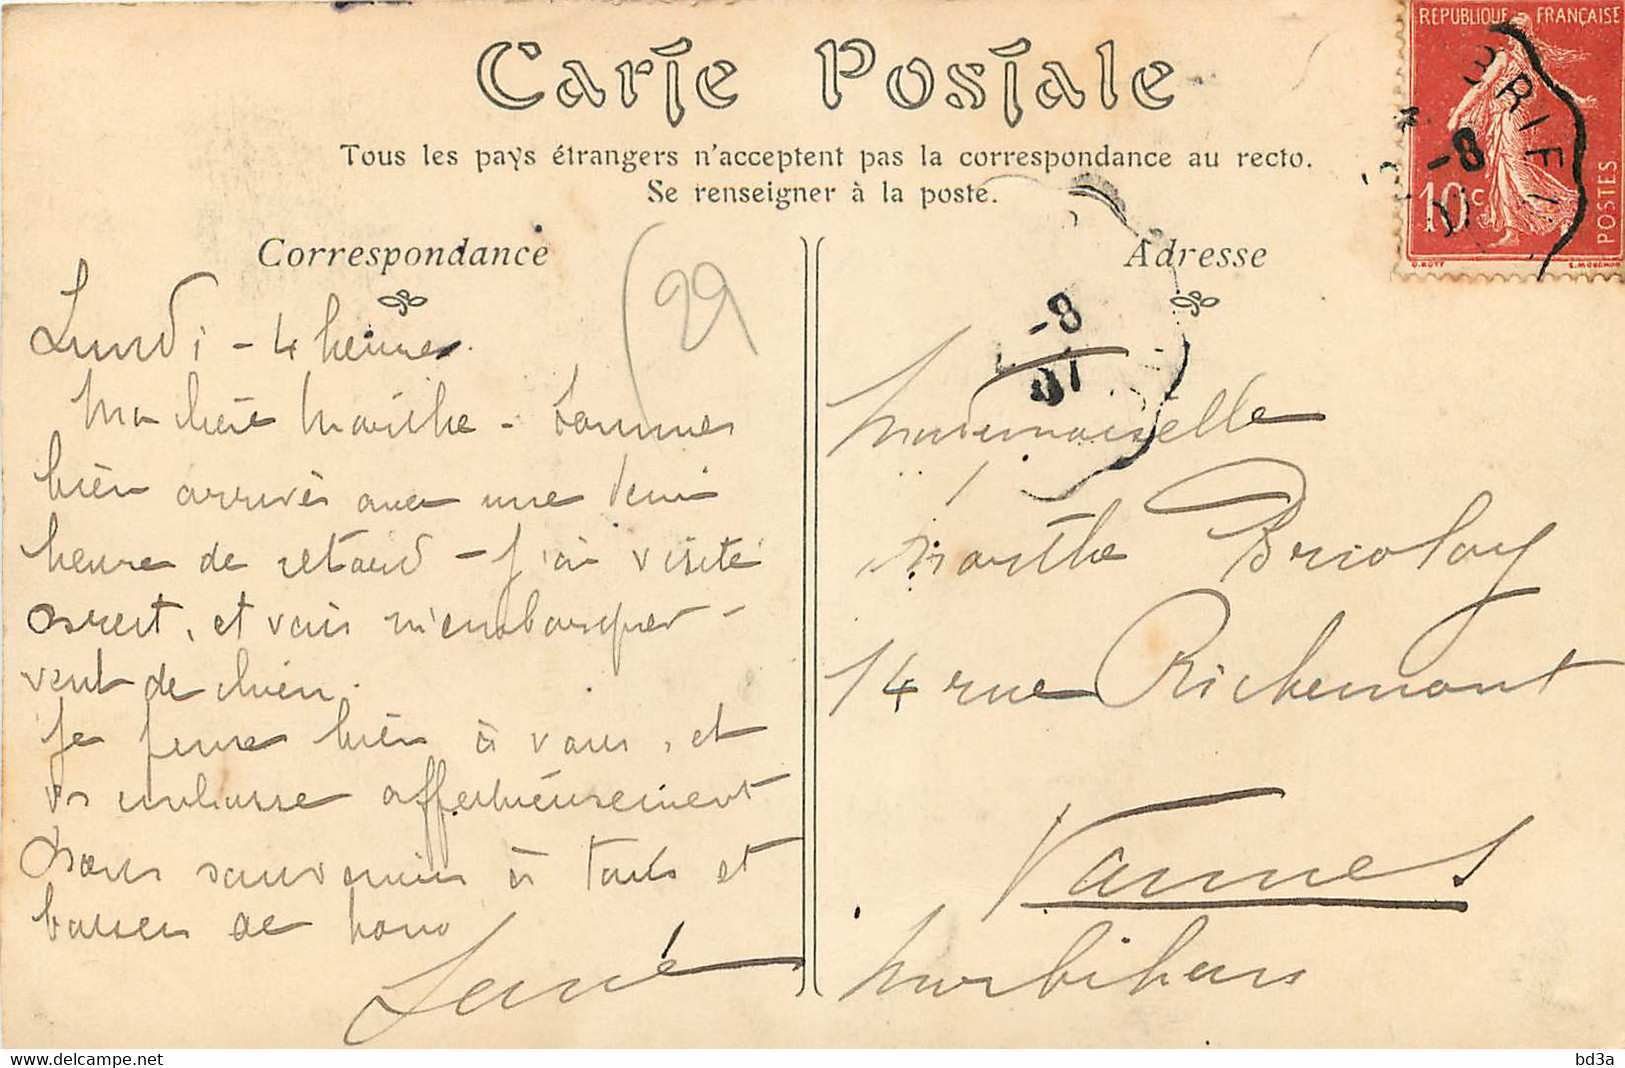 Carte Postale
Tous les pays étrangers n'acceptent pas la correspondance au recto.
Se renseigner à la poste.
Correspondance
Lundi - 4 heures.
Ma chère Marthe - Sommes
bien arrivés avec une demi
heure de retard - j'ai visité
Brest, et vais m'embarquer -
vent de chien.
Je pense bien à vous, et
vs embrasse affectueusement
Bons souvenirs à tous et
baisers de nous
29
Adresse
Mademoiselle
Marthe Briolay
14 rue Richemont
Vannes
Morbihan
RÉPUBLIQUE FRANÇAISE
10c
POSTES
O. ROTY
L. MOUCHON
-8
-8
07
bd3a